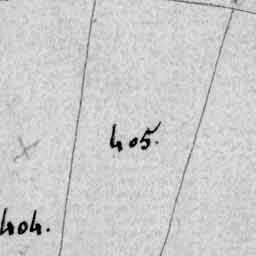 405.
404.